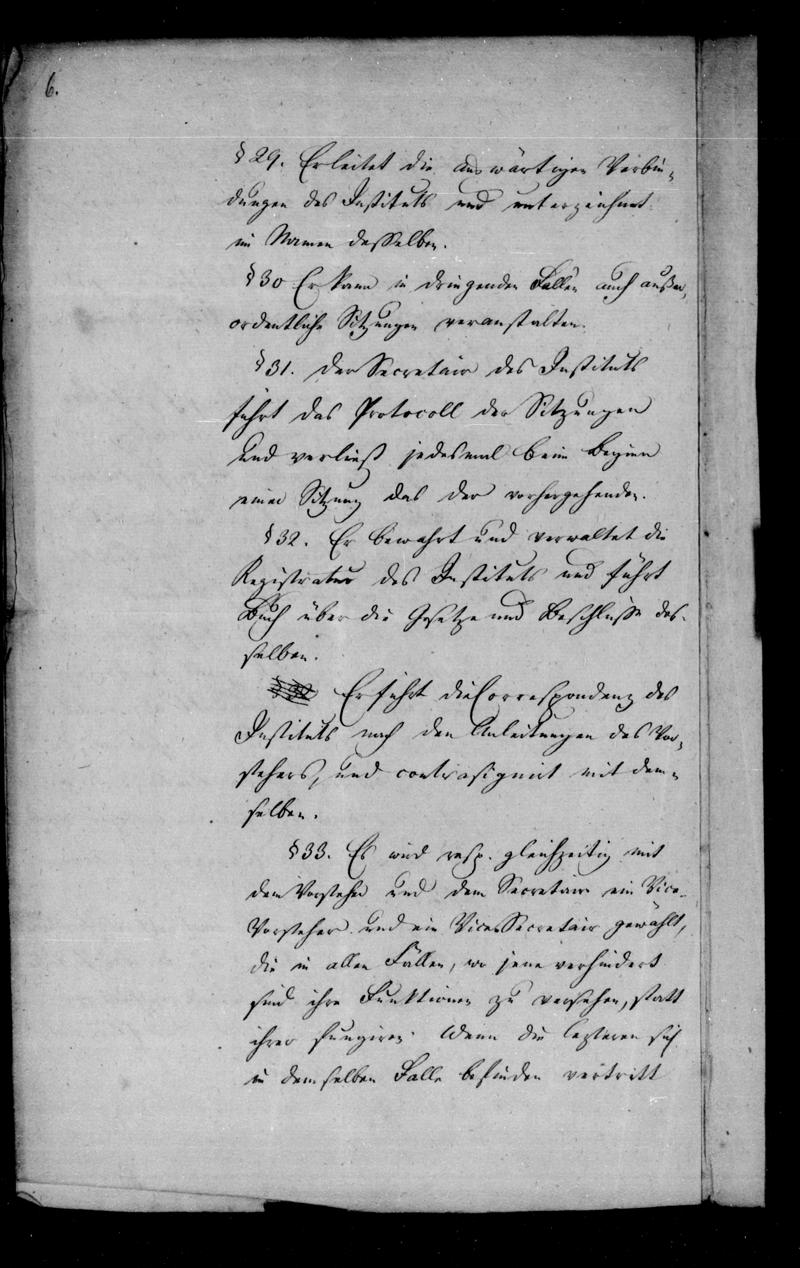 6.
§ 29. Er leitet die auswärtigen Verbin-
dungen des Instituts und unterzeichnet
im Namen desselben.
§ 30 Er kann in dringenden Fällen auch außer-
ordentliche Sitzungen veranstalten.
§ 31. Der Secretair des Instituts
führt das Protocoll der Sitzungen
und verließt jedesmal beim Beginn
einer Sitzung das der vorhergehenden.
§ 32. Er bewahrt und verwaltet die
Registratur des Instituts und führt
Buch über die Gesetze und Beschlüsse des-
selben.
Er führt die Correspondenz des
Instituts nach den Anleitungen des Vor-
stehers, und contrasignirt mit dem-
selben.
§ 33. Es wird resp. gleichzeitig mit
dem Vorsteher und dem Secretair ein Vice-
Vorsteher und ein Vice-Secretair gewählt,
die in allen Fällen, wo jene verhindert
sind ihre Funktionen zu versehen, statt
ihrer fungiren. Wenn die lezteren sich
in demselben Falle befinden vertritt